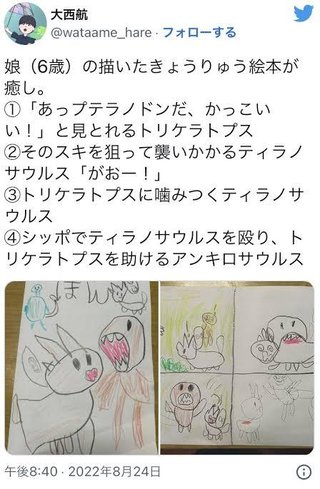 大西航
@wataame_hare · フォローする
娘（6歳）の描いたきょうりゅう絵本が
癒し。
①「あっプテラノドンだ、かっこい
い！」と見とれるトリケラトプス
②そのスキを狙って襲いかかるティラノ
サウルス「がおー！」
③トリケラトプスに噛みつくティラノサ
ウルス
④シッポでティラノサウルスを殴り、ト
リケラトプスを助けるアンキロサウルス
まん
午後8:40 · 2022年8月24日